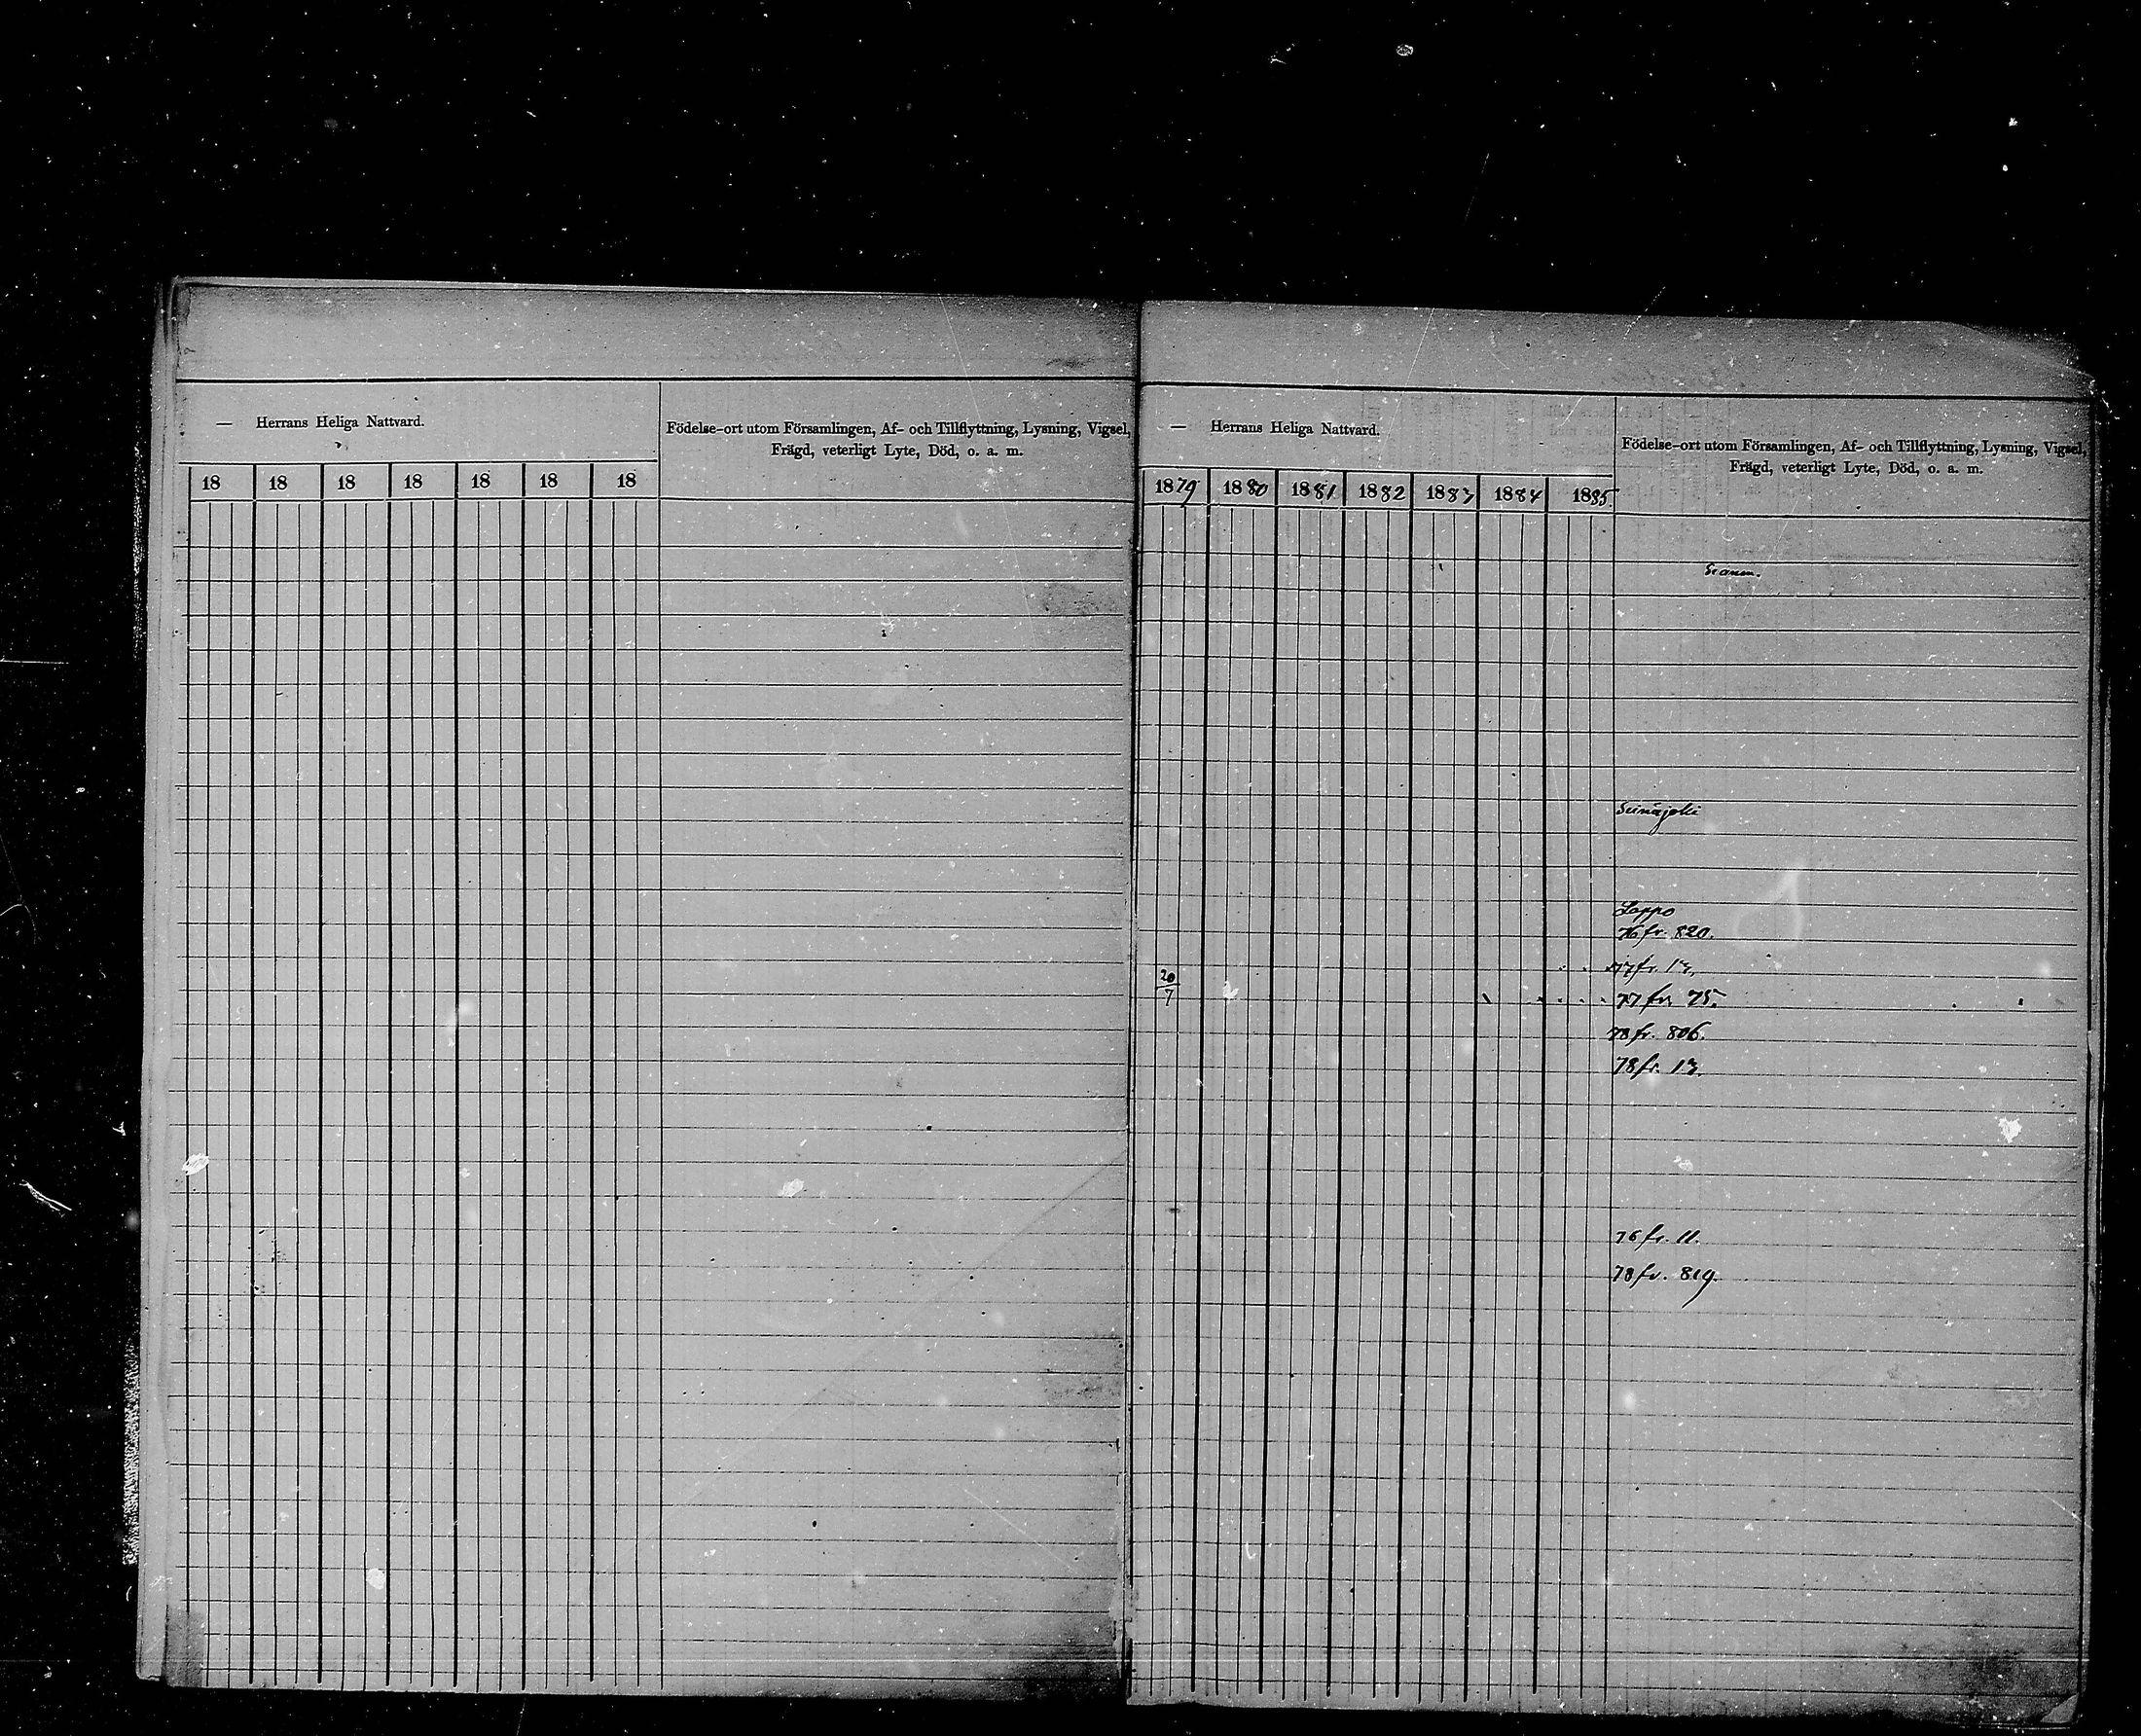 — Herrans Heliga Nattvard.
Födelse-ort utom Församlingen, Af- och Tillflyttning, Lysning, Vigsel,
Frägd, veterligt Lyte, Död, o. a. m.
18 18 18 18 18 18 18
— Herrans Heliga Nattvard.
Födelse-ort utom Församlingen, Af- och Tillflyttning, Lysning, Vigsel,
Frägd, veterligt Lyte, Död, o. a. m.
1879 1880 1881 1882 1883 1884 1885.
Seinäjoki
Lappo
76 fr. 820.
77 fr. 13.
20/7 77 fr. 75.
78 fr. 806.
78 fr. 13.
76 fr. 11.
78 fr. 819.